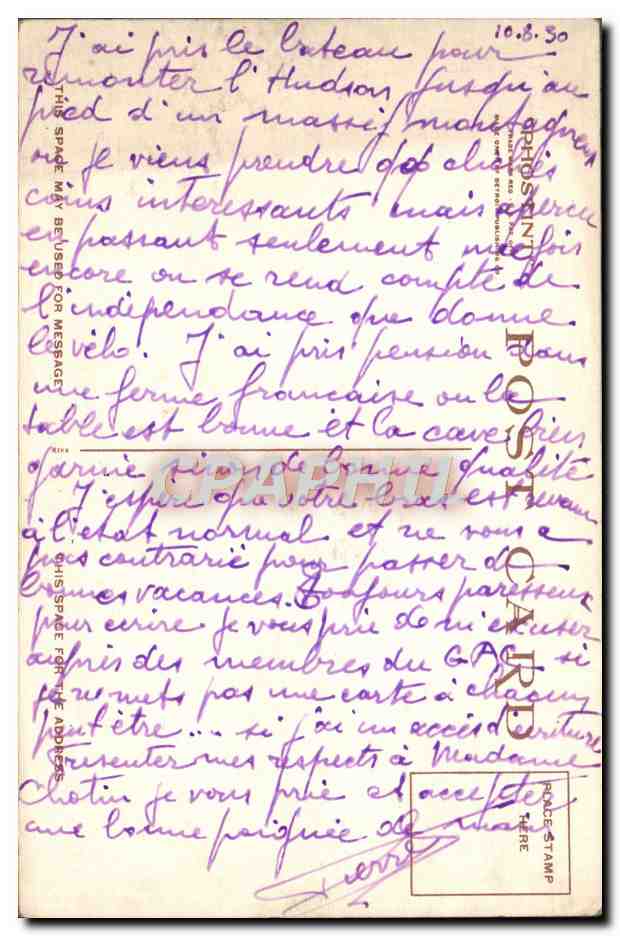 10.8.30
J'ai pris le bateau pour
remonter l'Hudson jusqu'au
pied d'un massif montagneux
où je viens prendre qqs clichés
coins intéressants mais aperçu
en passant seulement
encore on se rend compte de
l'indépendance que donne
le vélo. J'ai pris pension dans
une ferme française où la
table est bonne et la cave bien
garnie sinon de bonne qualité
J'espère que votre bras est revenu
à l'état normal et ne vous a
pas contrarié pour passer de
bonnes vacances. Toujours paresseux
pour écrire je vous prie de m'excuser
auprès des membres du GAC si
je ne mets pas une carte à chacun
peut être ... si j'ai un accès d'écriture
Présenter mes respects à Madame
Chotin je vous prie et acceptez
une bonne poignée de main
Pierre
THIS SPACE MAY BE USED FOR MESSAGE
THIS SPACE FOR THE ADDRESS
PHOSTINT
POST CARD
PLACE STAMP
HERE
CPAPHIL